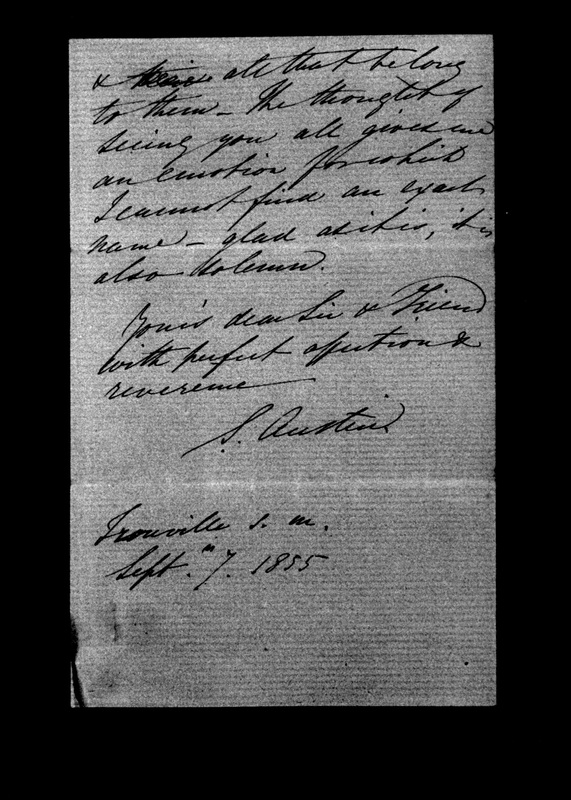 & all that belong
to them – The thought of
seeing you all gives me
an emotion for which
I cannot find an exact
name – glad as it is, it is
also solemn.
Yours dear Sir & Friend
with perfect affection &
reverence
S. Austin
Trouville s. m.
Sept. 7. 1855